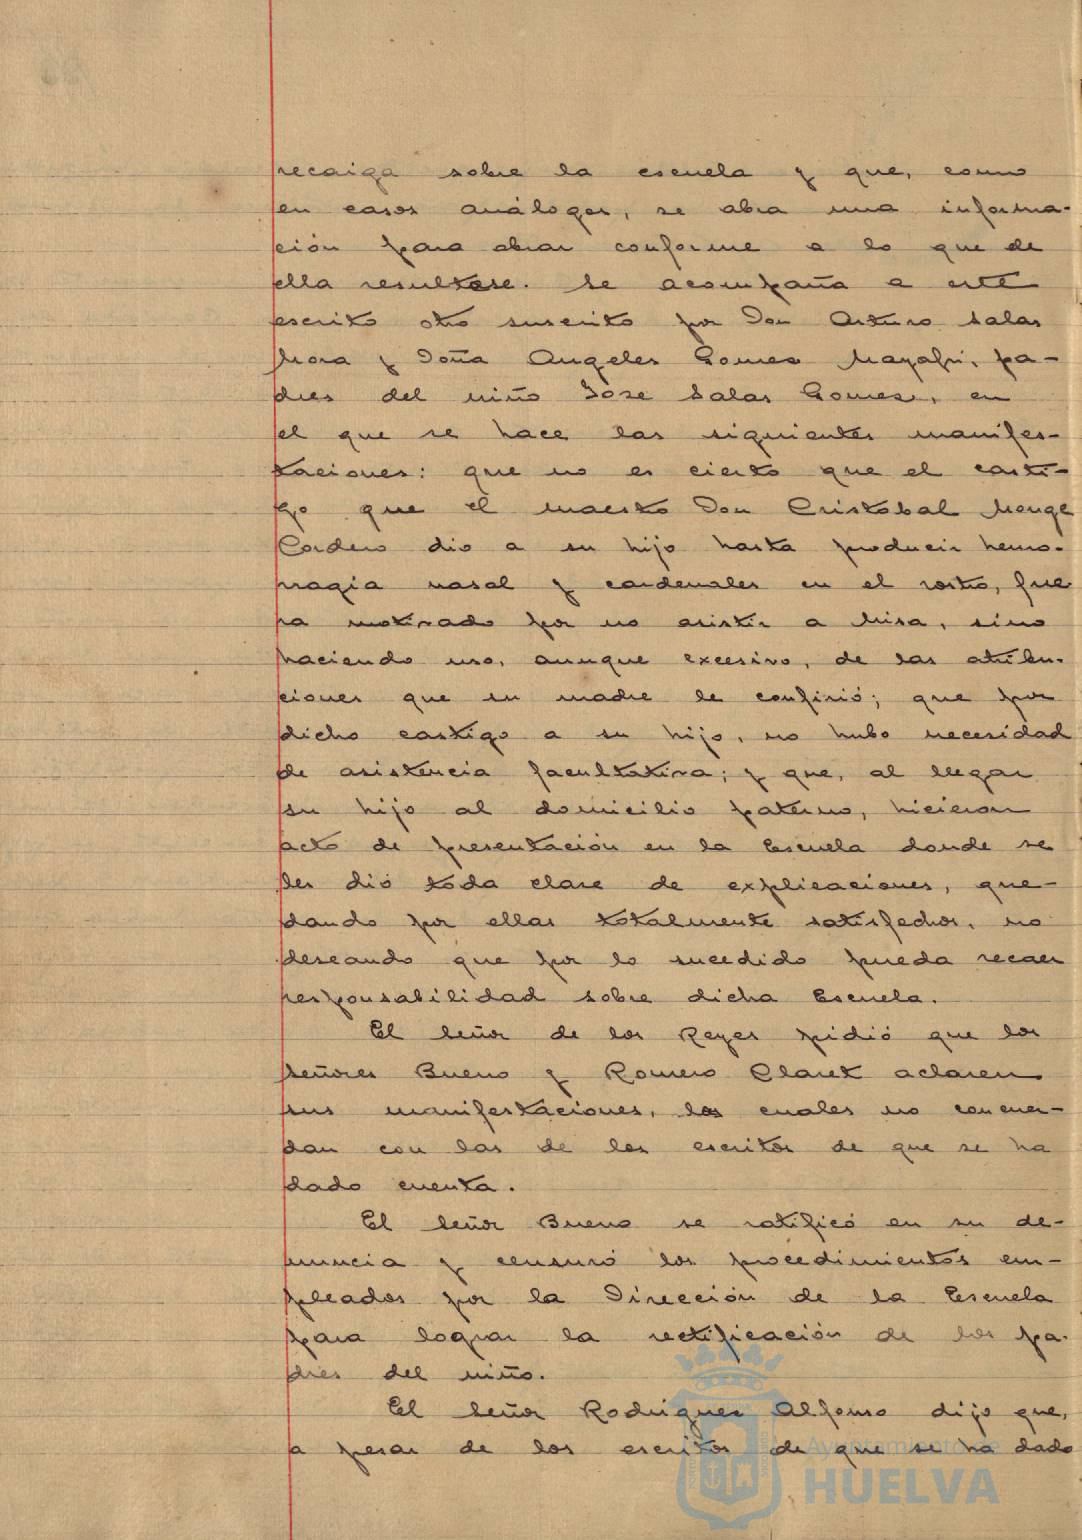 recaiga sobre la escuela y que, como
en casos análogos, se abra una informa-
ción para obrar conforme a lo que de
ella resultase. Se acompaña a este
escrito otro suscrito por Don Arturo Salas
Mora y Doña Angeles Gomez Mayafri, pa-
dres del niño Jose Salas Gomez, en
el que se hace las siguientes manifes-
taciones: que no es cierto que el casti-
go que el maestro Don Cristobal Monge
Cordero dio a su hijo hasta producir hemo-
rragia nasal y cardenales en el rostro, fue
ra motivado por no asistir a Misa, sino
haciendo uso, aunque excesivo, de las atribu-
ciones que su madre le confirió; que por
dicho castigo a su hijo, no hubo necesidad
de asistencia facultativa; y que, al llegar
su hijo al domicilio paterno, hicieron
acto de presentación en la Escuela donde se
les dió toda clase de explicaciones, que-
dando por ellas totalmente satisfechos, no
deseando que por lo sucedido pueda recaer
responsabilidad sobre dicha Escuela.
El Señor de los Reyes pidió que los
Señores Bueno y Romero Claret aclaren
sus manifestaciones, las cuales no concuer-
dan con las de los escritos de que se ha
dado cuenta.
El Señor Bueno se ratificó en su de-
nuncia y censuró los procedimientos em-
pleados por la Dirección de la Escuela
para lograr la rectificación de los pa-
dres del niño.
El Señor Rodriguez Alfonso dijo que,
a pesar de los escritos de que se ha dado
Ayuntamiento de
HUELVA